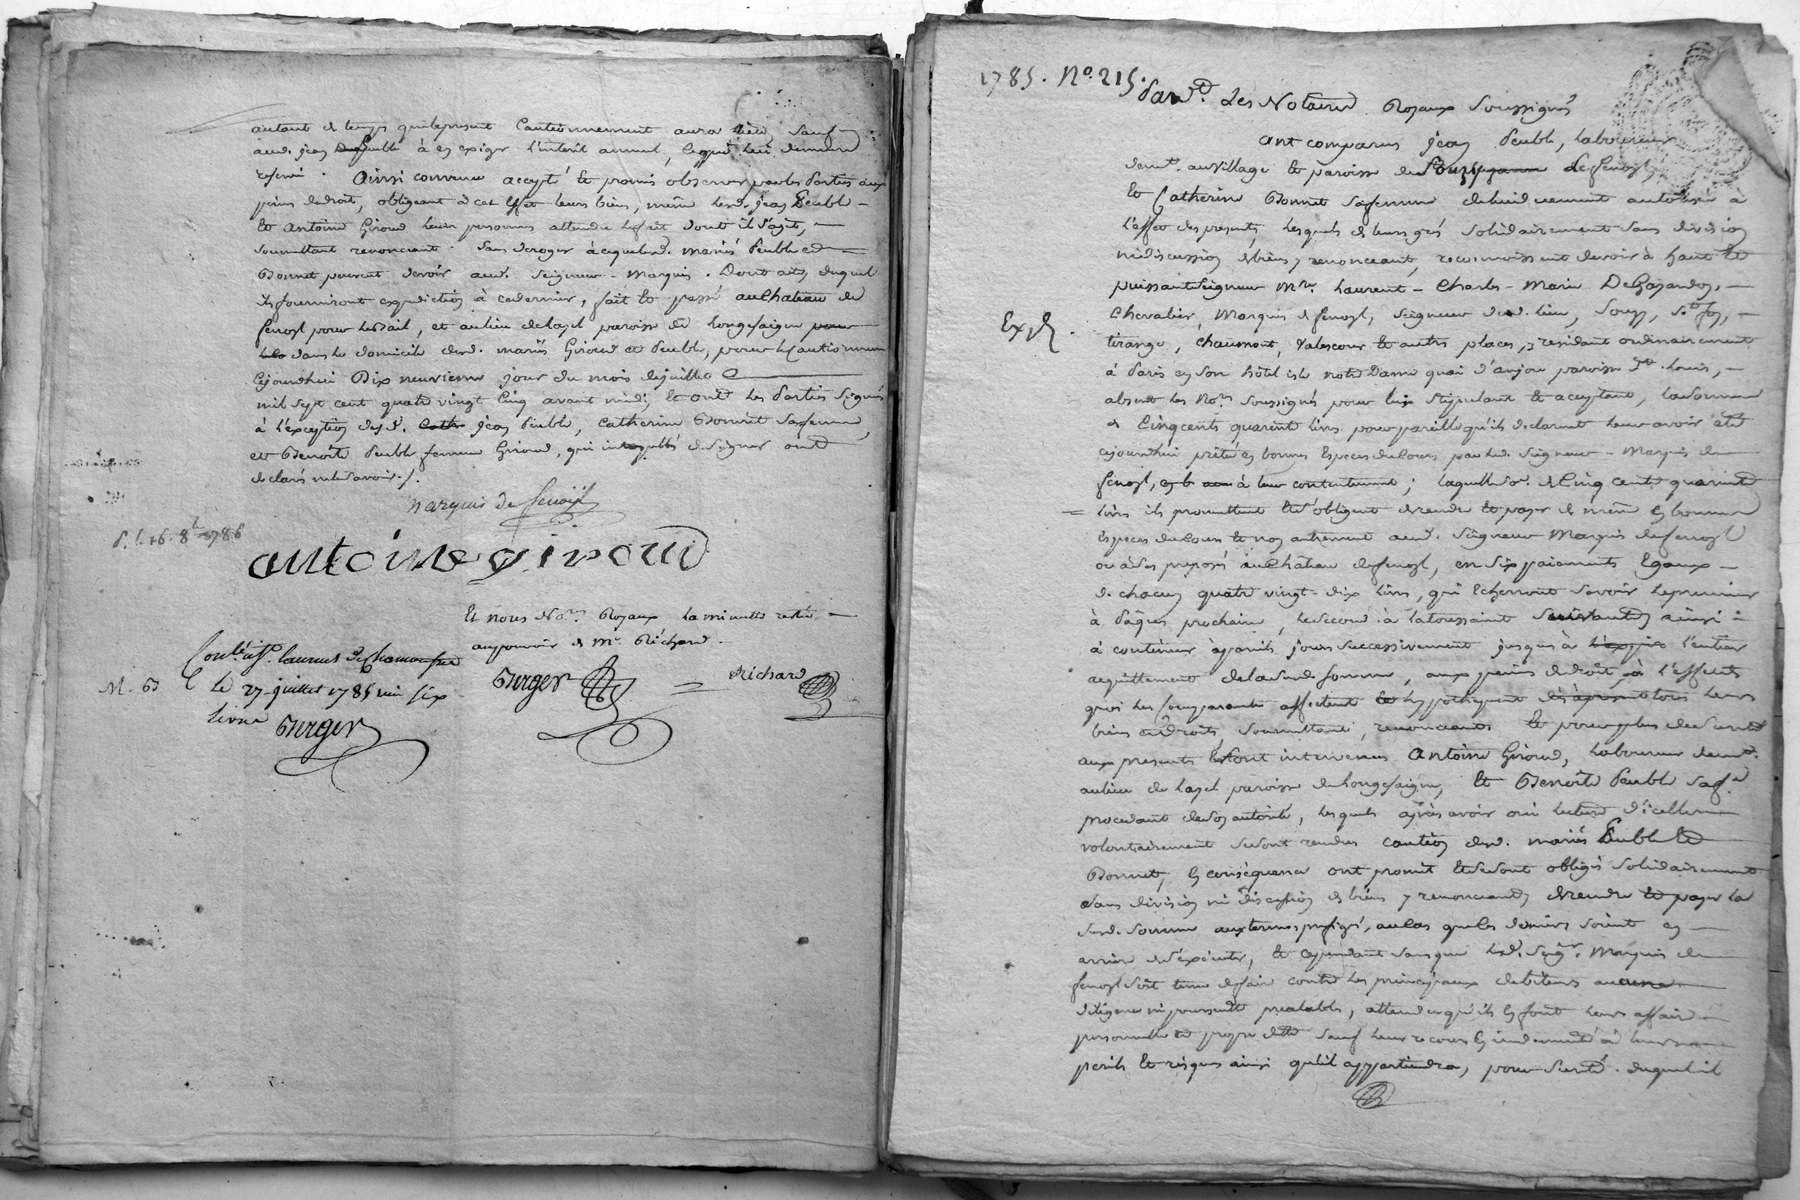 autant de temps que le present Cautionnement aura lieu, Sauf
aud. jean peuble à en exiger l'interil annuel, lequel lui demeure
reservé. Ainsi convenu accepté et promis observer par les parties aux
peines de droit, obligeant à cet effet leurs biens, même led. jean peuble
et antoine Giroud leurs personnes attendu le fait dont il s'agit,
Soumettant renonceant. Sans deroger à ce que lesd. mariés peuble et
Bonnet peuvent devoir aud. Seigneur Marquis. Dont acte duquel
ils fourniront expedition à ce dernier, fait et passé au Château de
fenoyl pour le bail, et au lieu de layel paroisse de Longessaigne
dans le domicile desd. mariés Giroud et peuble, pour le Cautionnement
Cejourdhui Dix neuvieme jour du mois de juillet
mil Sept cent quatre vingt Cinq avant midi, et ont les parties Signé
à l'exception desd. jean peuble, Catherine Bonnet sa femme,
et Benoîte peuble femme Giroud, qui interpellés de signer ont
declaré ne le savoir ./.
Marquis de fenoyl
antoine giroud
Et nous No.res Royaux la minutte restée
au pouvoir de M.e Richard.
Berger Richard
le 27 juillet 1785
livre Berger
1785. N.o 215.
Pard.t Les Notaires Royaux Soussignés
ont comparus jean peuble, laboureur
dem.t au village et paroisse de fenoyl,
et Catherine Bonnet sa femme de lui duement autorisée à
l'effet des presents, lesquels de leurs grés solidairement sans division
ni discussion de biens y renonceant, reconnoissent devoir à haut et
puissant Seigneur M.re Laurent - Charles - Marie De Gayardon,
Chevalier, Marquis de fenoyl, Seigneur dud. lieu, Souzy, S.te foy,
Exp.é
tirange, Chaumont, Valescour et autres places, y residant ordinairement
à Paris en son hôtel isle notre Dame quai d'anjou paroisse S.t Louis,
absent les No.res Soussignés pour lui stipulant et acceptant, la somme
de Cinq cents quarente livres pour pareille qu'ils declarent leur avoir été
cejourdhui prêtée en bonnes Especes de Cours par led. Seigneur Marquis de
fenoyl, à leur contentement; laquelle so.e de Cinq cents quarente
livres ils promettent et s'obligent de rendre et payer de même en bonnes
Especes de Cours et non autrement aud. Seigneur Marquis de fenoyl
ou à ses preposés au Château de fenoyl, en six paiements Egaux
de chacun quatre vingt-dix livres, qui Echerront savoir le premier
à Pâques prochain, le second à la toussaint suivante ainsi
à continuer à pareils jours successivement jusques à l'entier
acquittement de lad. somme, aux peines de droit, à l'effet de
quoi les Comparants affectent et hypothequent tous leurs
biens et droits, soumettant, renonceants. et pour plus de sureté
aux presents sont intervenus Antoine Giroud, laboureur dem.t
au lieu de layel paroisse de Longessaigne, et Benoîte Peuble sa f.e
procedant de son autorité, lesquels après avoir oui lecture d'icelles
volontairement se sont rendus caution desd. mariés Peuble et
Bonnet, en conséquence ont promit et se sont obligés solidairement
sans division ni discussion de biens y renonceant, de rendre et payer la
susd. somme aux termes prefigés, au cas que les derniers soient en
arriere de s'executer, et cependant sans que led. Seig.r Marquis de
fenoyl soit tenu de faire contre les principaux debiteurs aucune
diligence ni poursuitte prealable, attendu qu'ils en font leurs affaire
personnelle et propre dette sauf leur recours en indemnité à leurs
perils et risques ainsi qu'il appartiendra, pour sureté duquel il